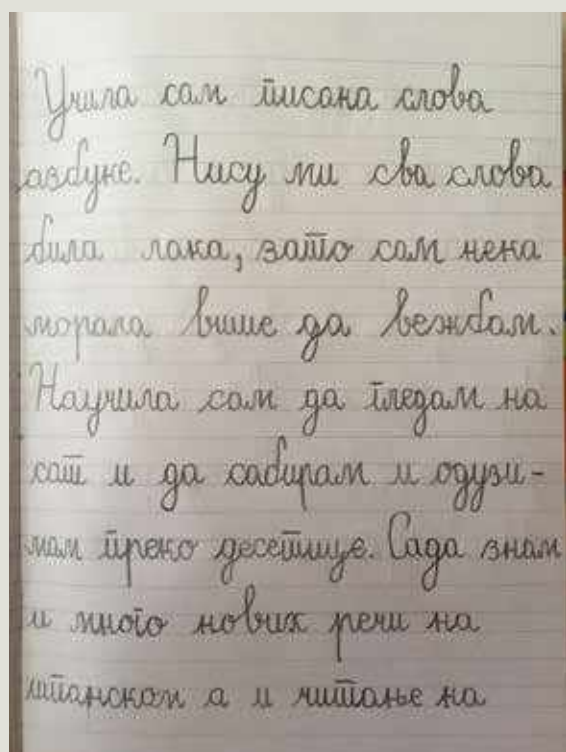 Учила сам писана слова
азбуке. Нису ми сва слова
била лака, зато сам нека
морала више да вежбам.
Научила сам да гледам на
сат и да сабирам и одузи-
мам преко десетице. Сада знам
и много нових речи на
шпанском а и читање на